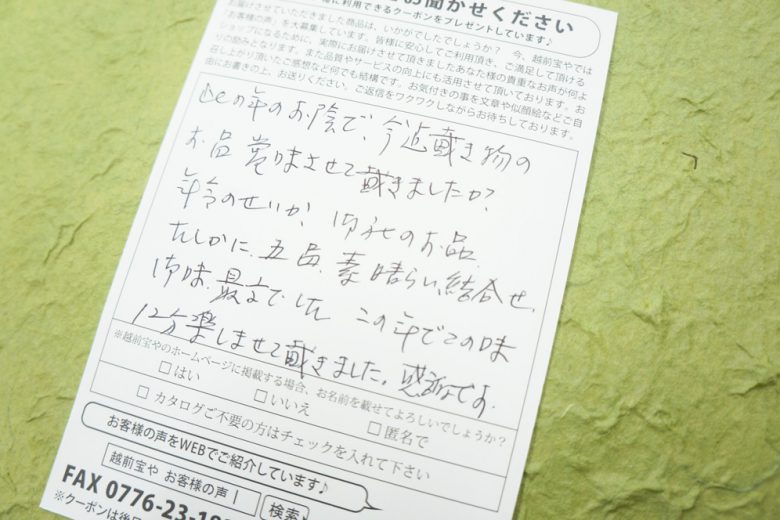 お聞かせください
物に利用できるクーポンをプレゼントしています♪
お届けさせていただきました商品は、いかがでしたでしょうか? 今、越前宝やでは
「お客様の声」を大募集しています。皆様に安心してご利用頂き、ご満足して頂ける
ショップになるために、実際にお届けさせて頂きましたあなた様の貴重なお声が何よ
りの励みとなります。また品質やサービスの向上にも活用させて頂いております。お
召し上がり頂いたご感想など何でも結構です。お気付きの事を文章や似顔絵などご自
由にお書きの上、お送りください。ご返信をワクワクしながらお待ちしております。
の年のお陰で、今迄戴き物の
お品賞味させて戴きましたが?
年令のせいか、御社のお品
たしかに、五品、素晴らしい結合せ、
御味、最高でした この年でこの味
12分楽しませて戴きました。感謝です。
※越前宝やのホームページに掲載する場合、お名前を載せてよろしいでしょうか?
□はい □いいえ □匿名で
□ カタログご不要の方はチェックを入れて下さい
お客様の声をWEBでご紹介しています♪
越前宝や お客様の声 検索
FAX 0776-23-1
※クーポンは後日